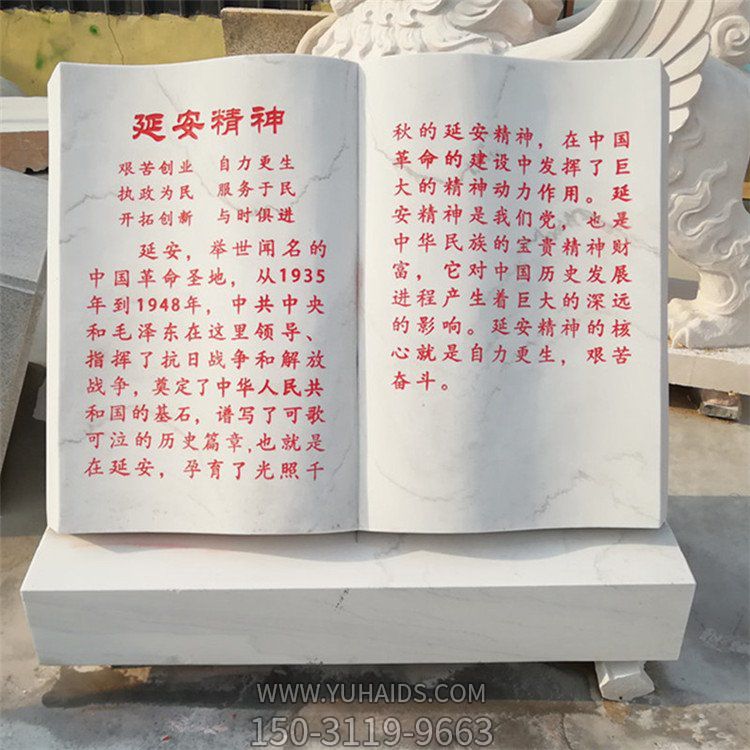 延安精神
艰苦创业 自力更生
执政为民 服务于民
开拓创新 与时俱进
延安，举世闻名的
中国革命圣地，从1935
年到1948年，中共中央
和毛泽东在这里领导、
指挥了抗日战争和解放
战争，奠定了中华人民共
和国的基石，谱写了可歌
可泣的历史篇章，也就是
在延安，孕育了光照千
秋的延安精神，在中国
革命的建设中发挥了巨
大的精神动力作用。延
安精神是我们党，也是
中华民族的宝贵精神财
富，它对中国历史发展
进程产生着巨大的深远
的影响。延安精神的核
心就是自力更生，艰苦
奋斗。
WWW.YUHAIDS.COM
150-3119-9663